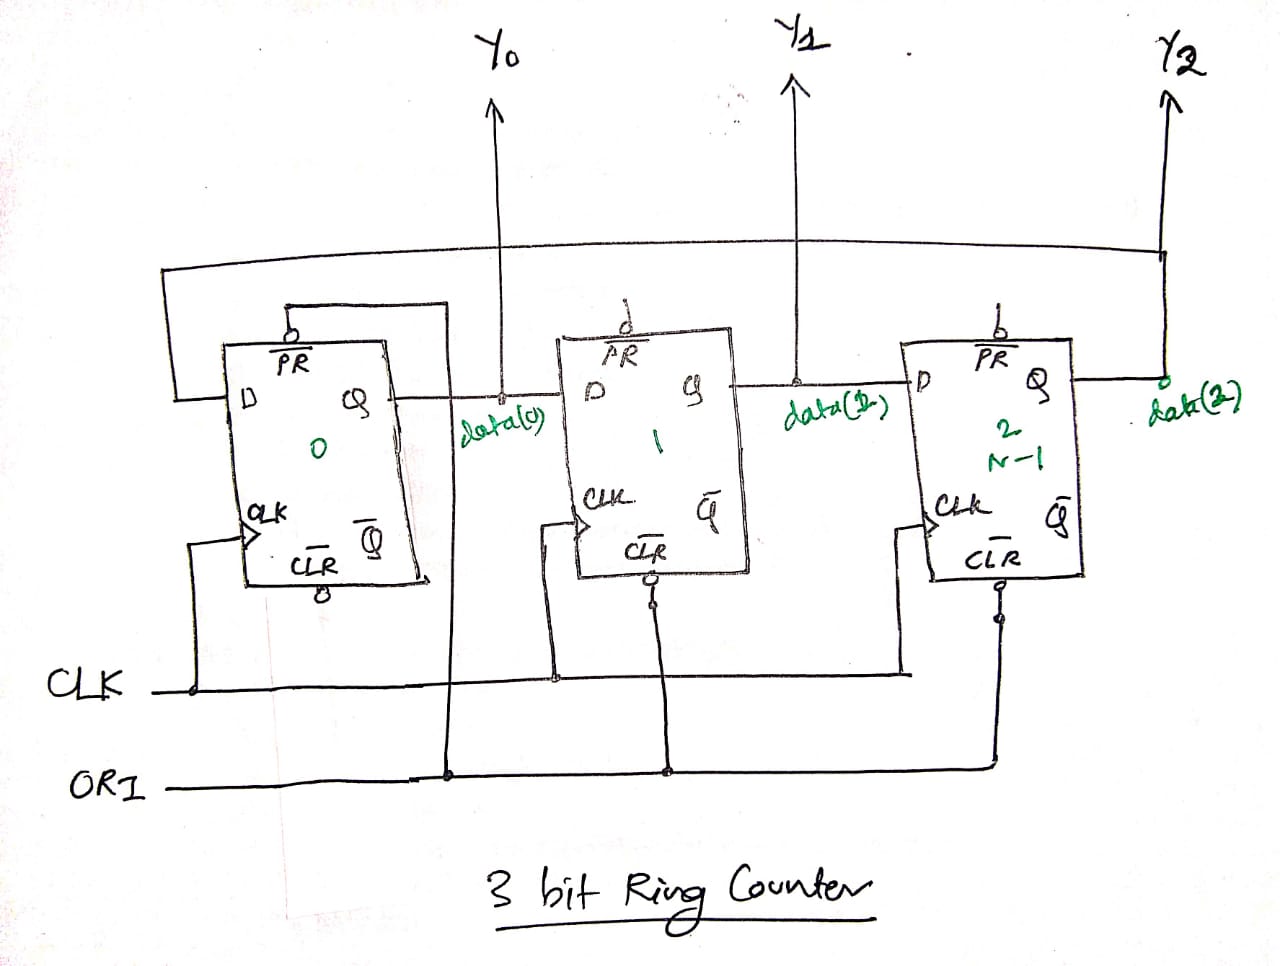 Y0
Y1
Y2
PR
D
Q
0
CLK
Q
CLR
data(0)
PR
D
Q
1
CLK
Q
CLR
data(1)
PR
D
Q
2
N-1
CLK
Q
CLR
data(2)
CLK
ORI
3 bit Ring Counter